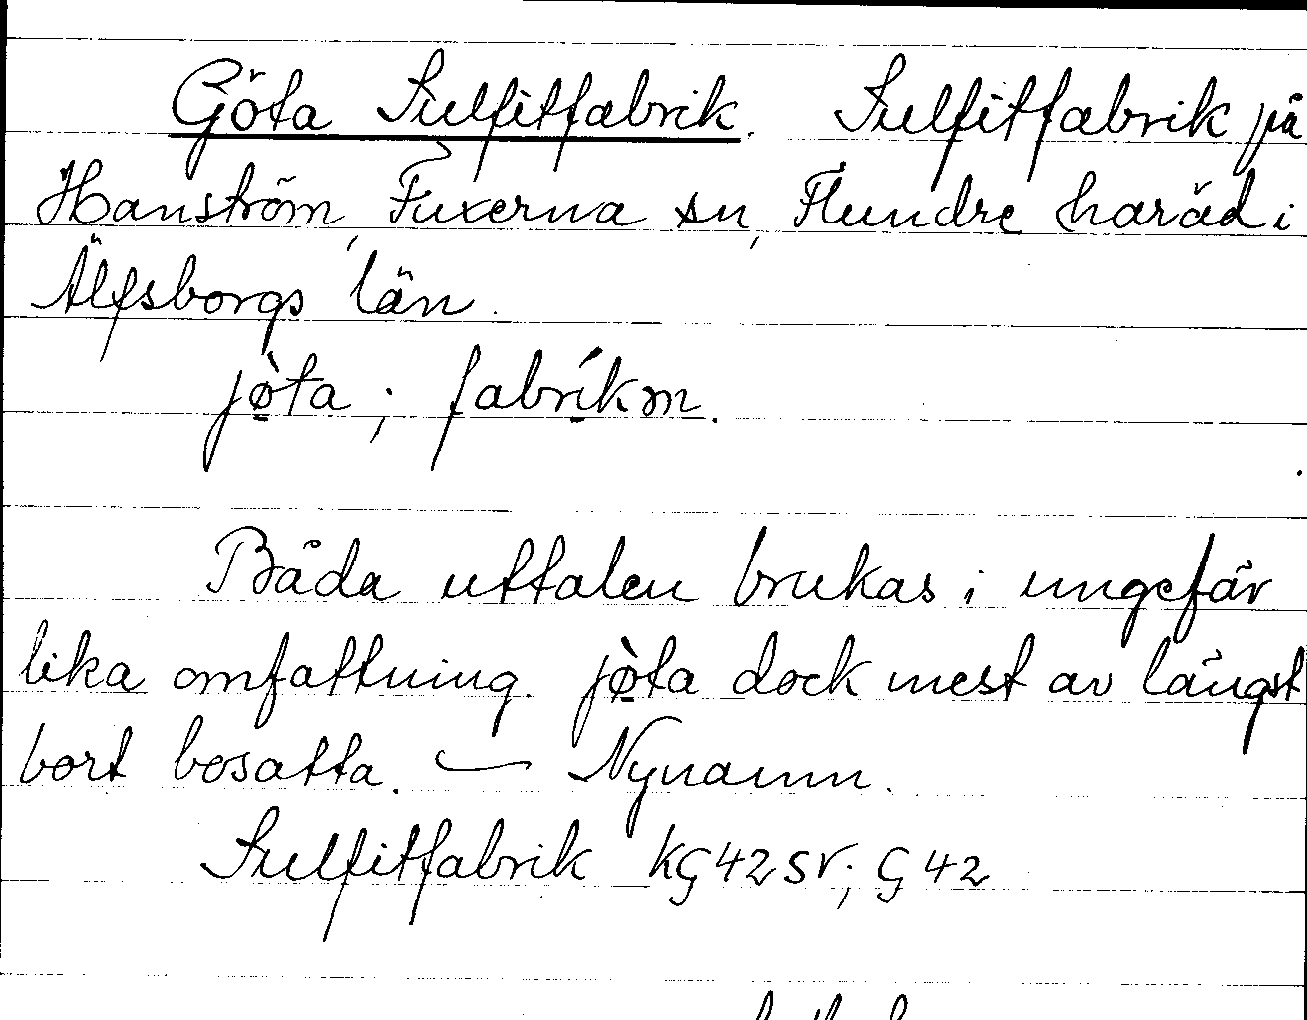 Göta Sulfitfabrik. Sulfitfabrik på
Hanström, Fuxerna sn, Flundre haräd i
Älfsborgs län.
jø̀ta ; fabríkm.
Båda uttalen brukas i ungefär
lika omfattning. jø̀ta dock mest av längst
bort bosatta. — Nynamn.
Sulfitfabrik KG42SV; G42